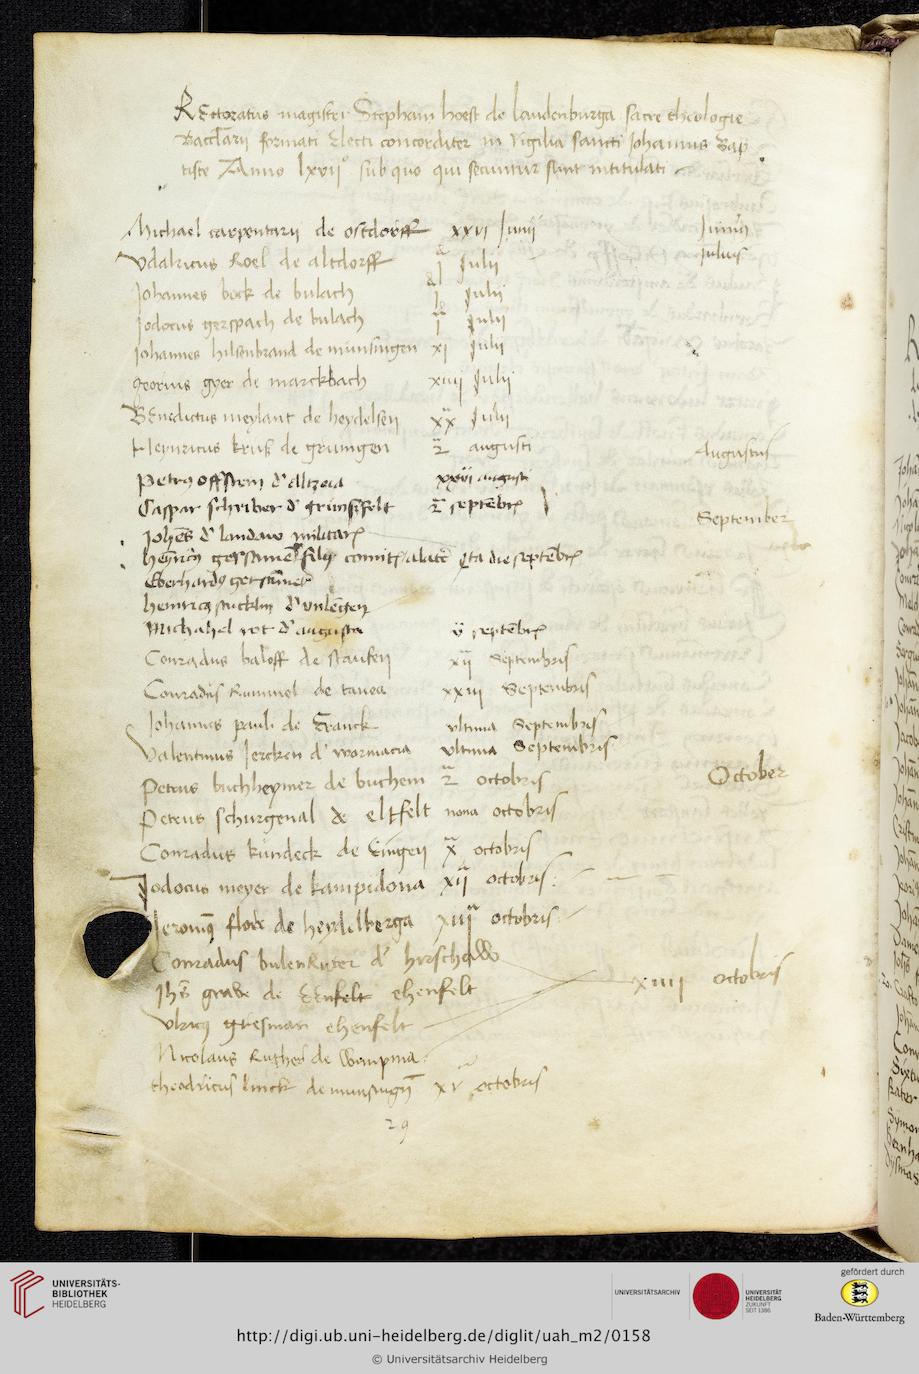 Rectoratus magistri Stephani hoest de laudenburga sacre theologie
Baccلarii formati Electi concorditer in vigilia sancti Johannis Bap
tiste Anno lxvii° sub quo qui secuntur sunt intitulati
Michael carpentarii de ostdorff xxvi Junii Junius
Udalricus Roel de altdorff Julii Julius
Johannes beck de bulach Julii
Jodocus gerspach de bulach Julii
Johannes hilsenbrand de munsingen xi Julii
Georius gyer de marckbach xiiii Julii
BEnedictus meylant de heydelsen xx Julii
Heynricus kruß de gruningen 2 augusti Augustus
Petrus offstein d' altzeia xxvii augusti
Caspar schriber d' grunsfelt 2 septebr
September
Johes d' landaw militar
heinric gerstmen filij comit alatie Qta die septebr
Eberhard9 getstmer
heinric9 stucklin d'
Michahel rot d' augusta v septebr
Conradus baloff de staufen xii Septembris
Conradus Rummel de tanea xxiii Septembris
Johannes pauli de Franck vltima Septembris
Valentinus Jercken d' wormacia vltima Septembris
Petrus buchheymer de buchem 2 octobris October
Petrus schurgenal de eltfelt nona octobris
Conradus kundeck de Eingen x octobris
Jodocus meyer de kampidona xii octobris
Jeronim9 flode de heydelberga xiii octobris
Conradus bulenkyter d' hirschaw
Jhs grave de Ernfelt ehenfelt xiiii octobris
vlric9 gresman ehenfelt
Nicolaus Ruther de Wimpina
theodricus linck de munsingn xv octobris
29
UNIVERSITÄTS-
BIBLIOTHEK
HEIDELBERG
UNIVERSITÄTSARCHIV
UNIVERSITÄT
HEIDELBERG
ZUKUNFT
SEIT 1386
gefördert durch
Baden-Württemberg
http://digi.ub.uni-heidelberg.de/diglit/uah_m2/0158
© Universitätsarchiv Heidelberg